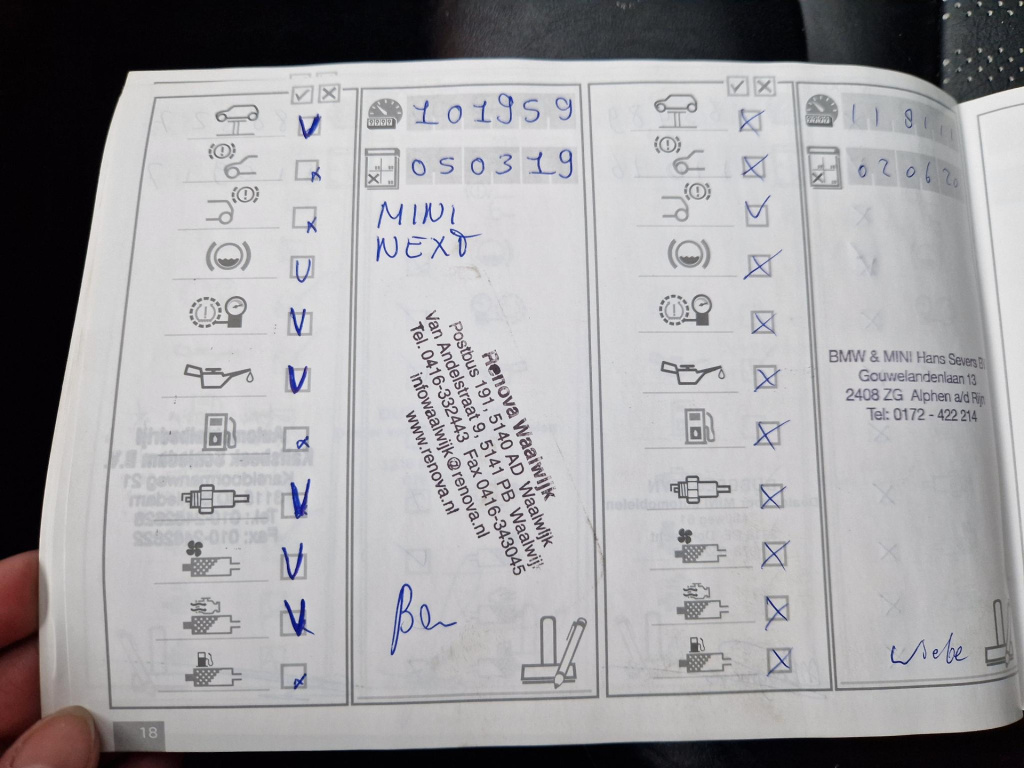 101959
050319
MINI
NEXT
Renova Waalwijk
Postbus 191, 5140 AD Waalwijk
Van Andelstraat 9, 5141 PB Waalwijk
Tel. 0416-332443 Fax 0416-343045
infowaalwijk@renova.nl
www.renova.nl
Ben
020620
BMW & MINI Hans Severs B
Gouwelandenlaan 13
2408 ZG Alphen a/d Rijn
Tel: 0172 - 422 214
Wiebe
18